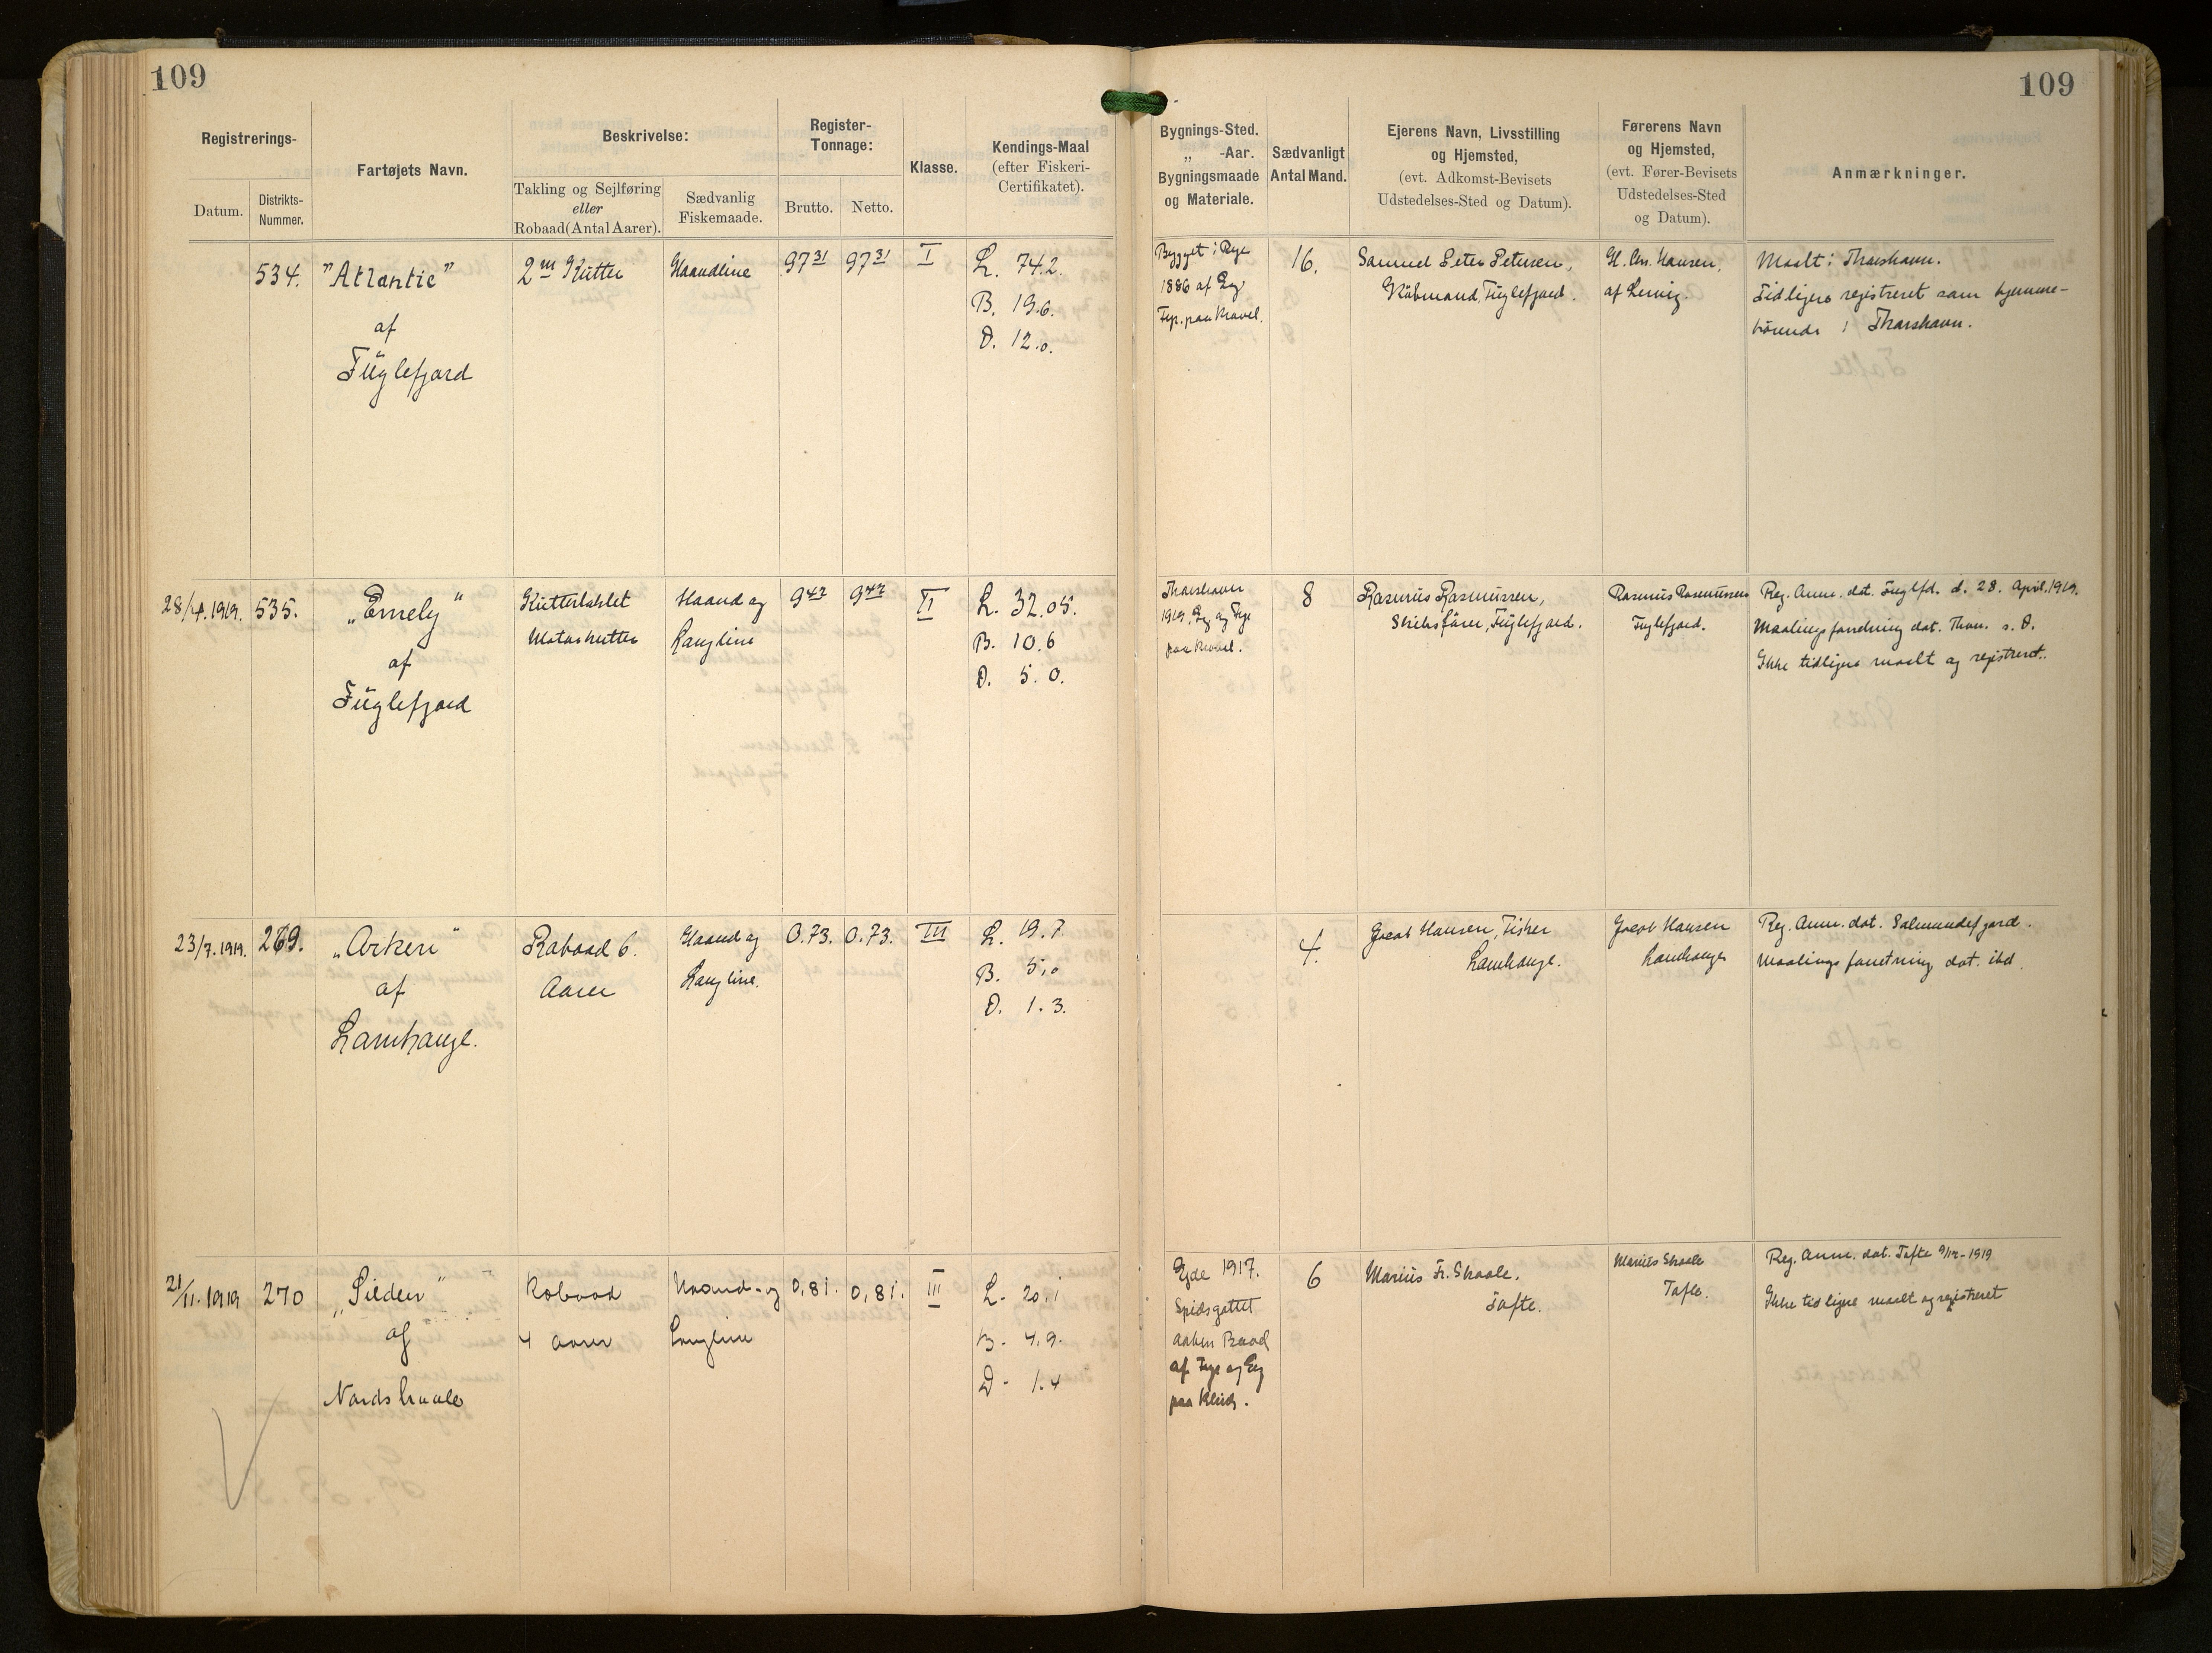 109
109
Registrerings-
Datum.
Distrikts-
Nummer.
Fartøjets Navn.
Beskrivelse:
Takling og Sejlføring
eller
Robaad (Antal Aarer).
Sædvanlig
Fiskemaade.
Register-
Tonnage:
Brutto.
Netto.
Klasse.
Kendings-Maal
(efter Fiskeri-
Certifikatet).
Bygnings-Sted.
„ -Aar.
Bygningsmaade
og Materiale.
Sædvanligt
Antal Mand.
Ejerens Navn, Livsstilling
og Hjemsted,
(evt. Adkomst-Bevisets
Udstedelses-Sted og Datum).
Førerens Navn
og Hjemsted,
(evt. Fører-Bevisets
Udstedelses-Sted
og Datum).
Anmærkninger.
534.
"Atlantic"
af
Fuglefjord
2 m Kutter
Haandline
97 31
97 31
I
L. 74.2.
B. 19.6.
D. 12.0.
Bygget i Rye
1886 af Eg
Fyr. paa Kravel.
16.
Samuel Peter Petersen,
Købmand, Fuglefjord.
Hansen,
af Lervig.
Maalt i Thorshavn.
Tidligere registreret som hjemme-
hörende i Thorshavn.
28/4.1919.
535.
„Emely"
af
Fuglefjord
Kuttertaklet
Motorkutter
Haand og
Langline
9 42
9 42
II
L. 32.05.
B. 10.6
D. 5.0.
Thorshavn
1919. Eg og Fyr
paa Kravel.
8
Rasmus Rasmussen,
Skibsfører, Fuglefjord.
Rasmus Rasmussen
Fuglefjord.
Reg. Anm. dat. Fuglfd. d. 28. April. 1919.
Maalingsforretning dat. Thvn. s. D.
Ikke tidligere maalt og registreret.
23/7.1919.
269.
„Örken"
af
Lamhauge.
Robaad 6.
Aarer
Haand og
Langline.
0.73.
0.73.
III
L. 19.7
B. 5.0
D. 1.3.
4.
Jacob Hansen, Fisker
Lamhauge.
Jacob Hansen
Lamhauge
Reg. Anm. dat. Salmundefjord.
Maalingsforretning dat. ibd.
21/11.1919
270
„Silden"
af
Nordskaale
Robaad
4 Aarer
Haand- og
Langline
0,81.
0,81.
III
L- 20.1
B- 4.9.
D- 1.4
Ejde 1917.
Spidsgattet
aaben Baad
af Fyr og Eg
paa Klink.
6
Marius Fr. Skaale,
Tofte.
Marius Skaale
Tofte.
Reg. Anm. dat. Tofte 9/12-1919
Ikke tidligere maalt og registreret